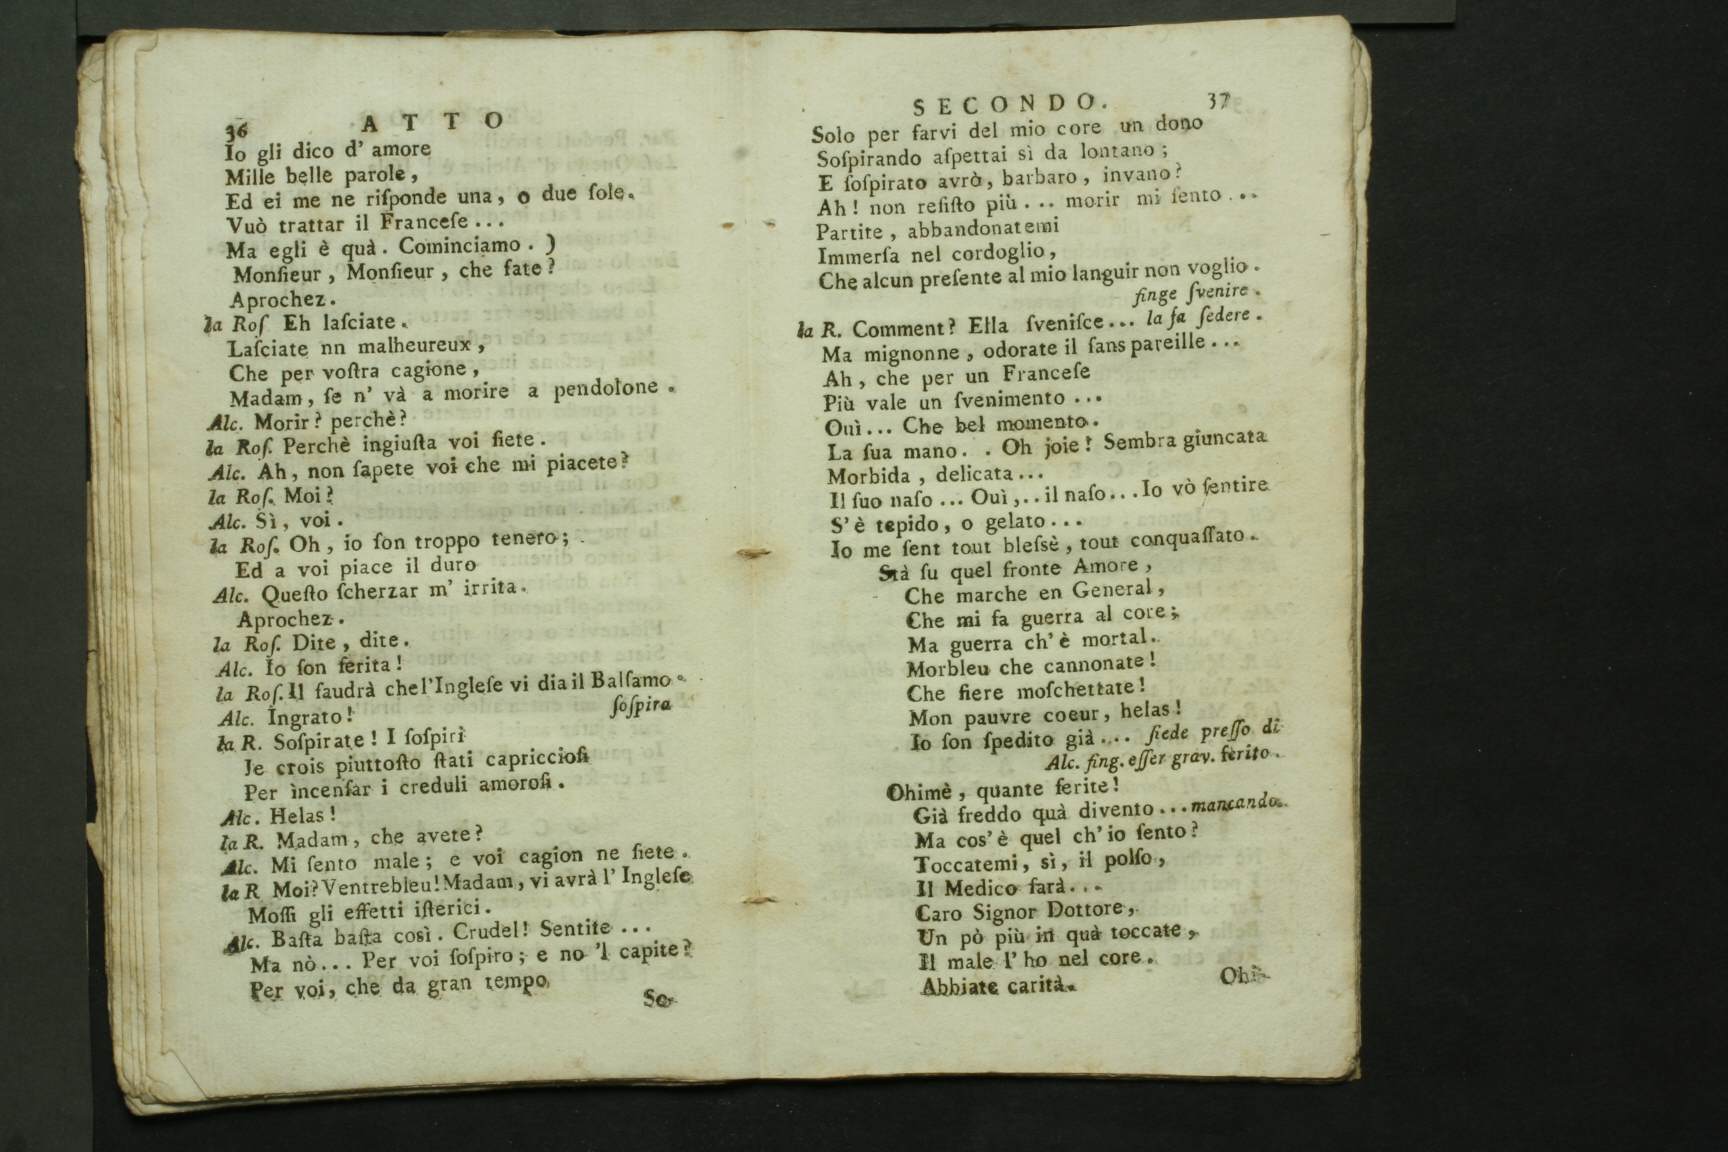 36 ATTO
Io gli dico d' amore
Mille belle parole,
Ed ei me ne riſponde una, o due ſole.
Vuò trattar il Franceſe...
Ma egli è quà. Cominciamo. )
Monſieur, Monſieur, che fate?
Aprochez.
la Roſ Eh laſciate.
Laſciate nn malheureux,
Che per voſtra cagione,
Madam, ſe n' và a morire a pendolone.
Alc. Morir? perchè?
la Roſ. Perchè ingiuſta voi ſiete.
Alc. Ah, non ſapete voi che mi piacete?
la Roſ. Moi?
Alc. Sì, voi.
la Roſ. Oh, io ſon troppo tenero;
Ed a voi piace il duro
Alc. Queſto ſcherzar m' irrita.
Aprochez.
la Roſ. Dite, dite.
Alc. Io ſon ferita!
la Roſ. Il faudrà che l'Ingleſe vi dia il Balſamo.
Alc. Ingrato! ſoſpira
la R. Soſpirate! I ſoſpiri
Je crois piuttoſto ſtati capriccioſi
Per ìncenſar i creduli amoroſi.
Alc. Helas!
la R. Madam, che avete?
Alc. Mi ſento male; e voi cagion ne ſiete.
la R Moi? Ventrebleu! Madam, vi avrà l' Ingleſe
Moſſi gli effetti iſterici.
Alc. Baſta baſta così. Crudel! Sentite...
Ma nò... Per voi ſoſpiro; e no 'l capite?
Per voi, che da gran tempo
So-
SECONDO. 37
Solo per farvi del mio core un dono
Soſpirando aſpettai sì da lontano;
E ſoſpirato avrò, barbaro, invano?
Ah! non reſiſto più... morir mi ſento...
Partite, abbandonatemi
Immerſa nel cordoglio,
Che alcun preſente al mio languir non voglio.
finge ſvenire.
la R. Comment? Ella ſveniſce... la fa ſedere.
Ma mignonne, odorate il ſans pareille...
Ah, che per un Franceſe
Più vale un ſvenimento...
Ouì... Che bel momento.
La ſua mano. . Oh joie! Sembra giuncata
Morbida, delicata...
Il ſuo naſo... Ouì,.. il naſo... Io vò ſentire
S' è tepido, o gelato...
Io me ſent tout bleſsè, tout conquaſſato.
Stà ſu quel fronte Amore,
Che marche en General,
Che mi fa guerra al core;
Ma guerra ch' è mortal.
Morbleu che cannonate!
Che fiere moſchettate!
Mon pauvre coeur, helas!
Io ſon ſpedito già... ſiede preſſo di
Alc. fing. eſſer grav. ferito.
Ohimè, quante ferite!
Già freddo quà divento... mancando.
Ma cos' è quel ch' io ſento?
Toccatemi, sì, il polſo,
Il Medico farà...
Caro Signor Dottore,
Un pò più in quà toccate,
Il male l' ho nel core.
Abbiate carità.
Ohi-